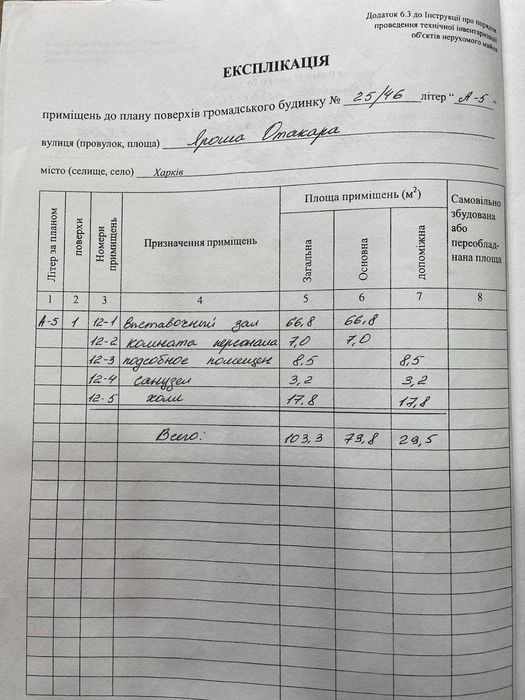 Додаток 6.3 до Інструкції про порядок
проведення технічної інвентаризації
об'єктів нерухомого майна
ЕКСПЛІКАЦІЯ
приміщень до плану поверхів громадського будинку № 25/46 літер " А-5 "
вулиця (провулок, площа) Яроша Отакара
місто (селище, село) Харків
Літер за планом поверхи Номери примищень Призначення приміщень Площа приміщень (м²) Загальна Основна допоміжна Самовільно збудована або переоблад- нана площа
1 2 3 4 5 6 7 8
А-5 1 12-1 выставочный зал 66,8 66,8
12-2 комната персонала 7,0 7,0
12-3 подсобное помещен 8,5 8,5
12-4 санузел 3,2 3,2
12-5 холл 17,8 17,8
Всего: 103,3 73,8 29,5